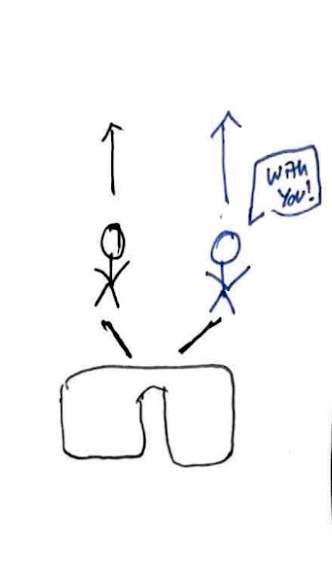 With
You!